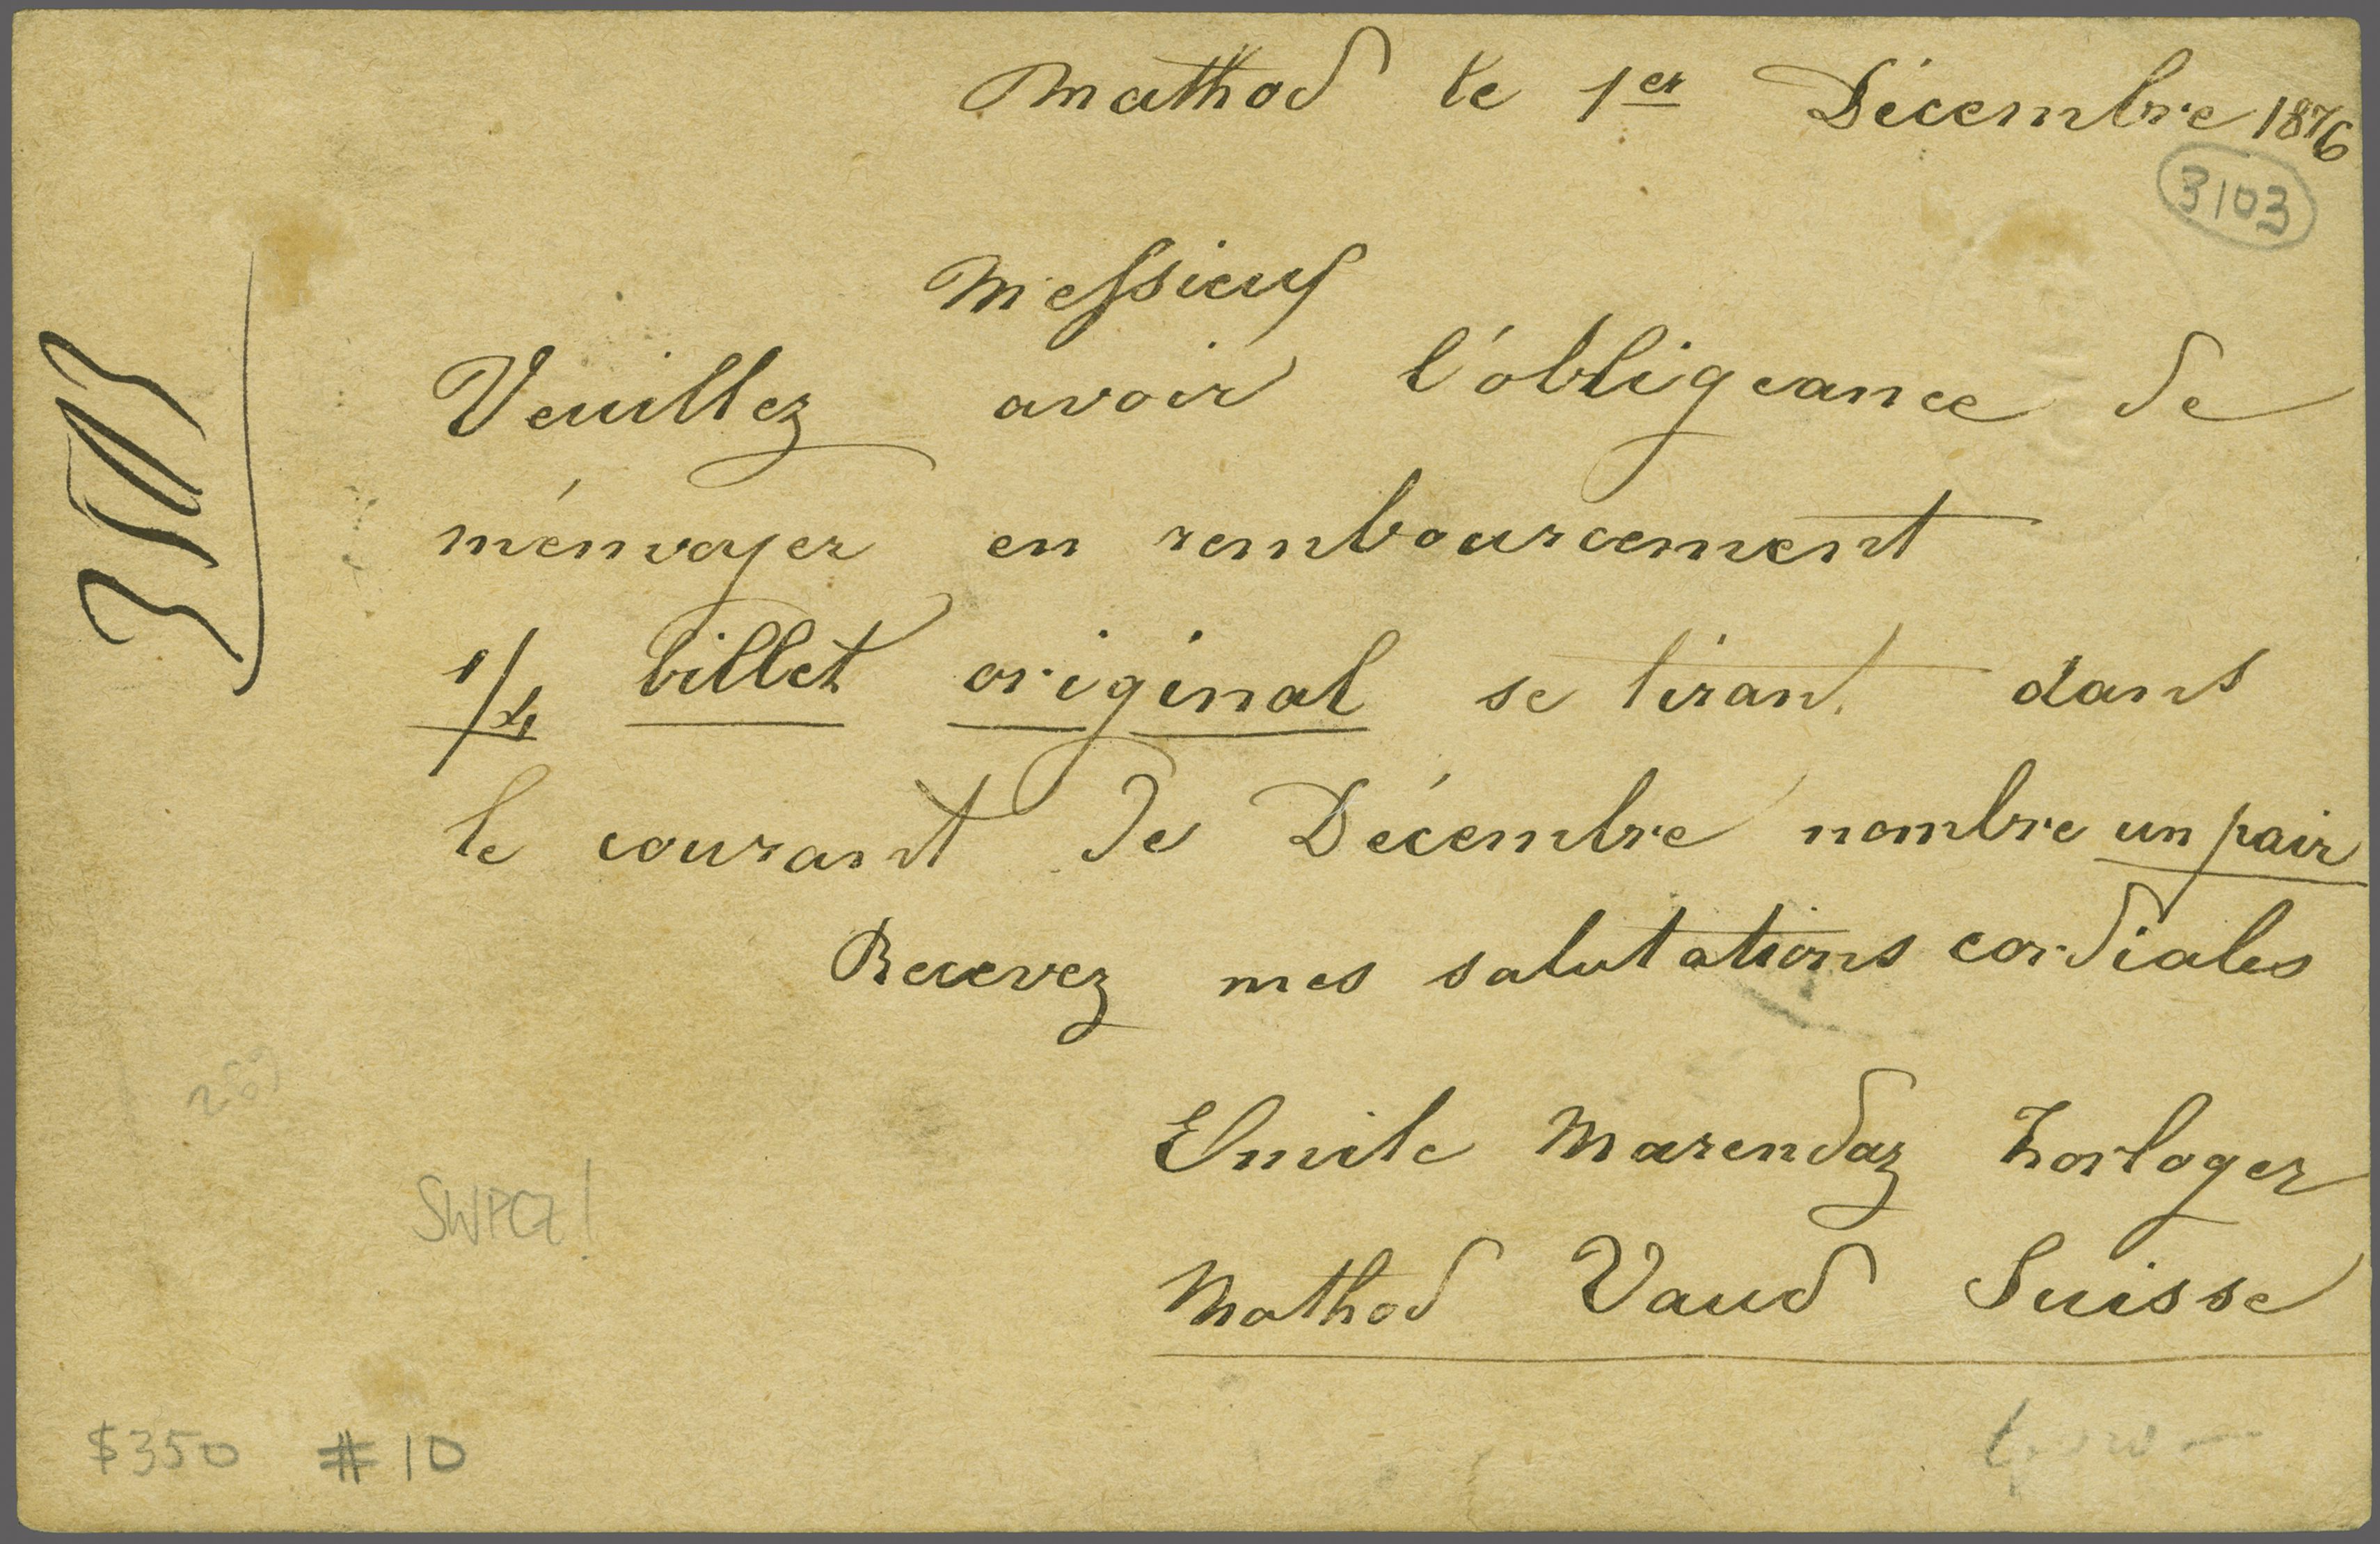 Mathod le 1er Décembre 1876
3103
Messieurs
Veuillez avoir l'obligeance de
m'énvoyer en rembourcement
1/4 billet original se tirant dans
le courant de Décembre nombre un pair
Recevez mes salutations cordiales
Emile Marendaz horloger
Mathod Vaud Suisse
$350 #10